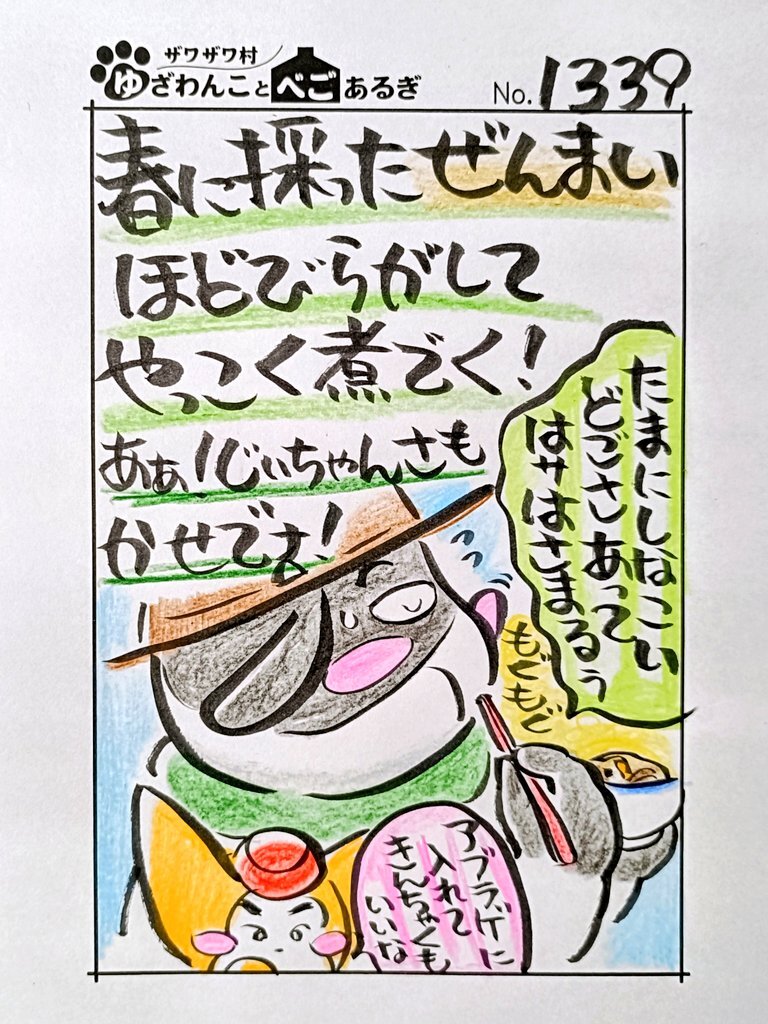 ザワザワ村
ゆざわんことべごあるぎ
No.1339
春に採ったぜんまい
ほどびらがして
やっこく煮でく！
あぁ！じいちゃんさも
かせでぇ！
たまにしなこい
どごさしあって
はサはさまるぅ
もぐもぐ
アブラゲに
入れて
きんちゃくも
いいな